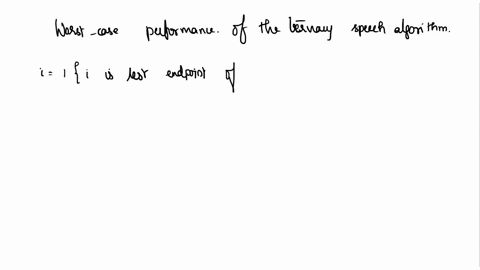 Worst-case performance. of the ternary speech algorithm.
i = 1 { i is lest endpoint of